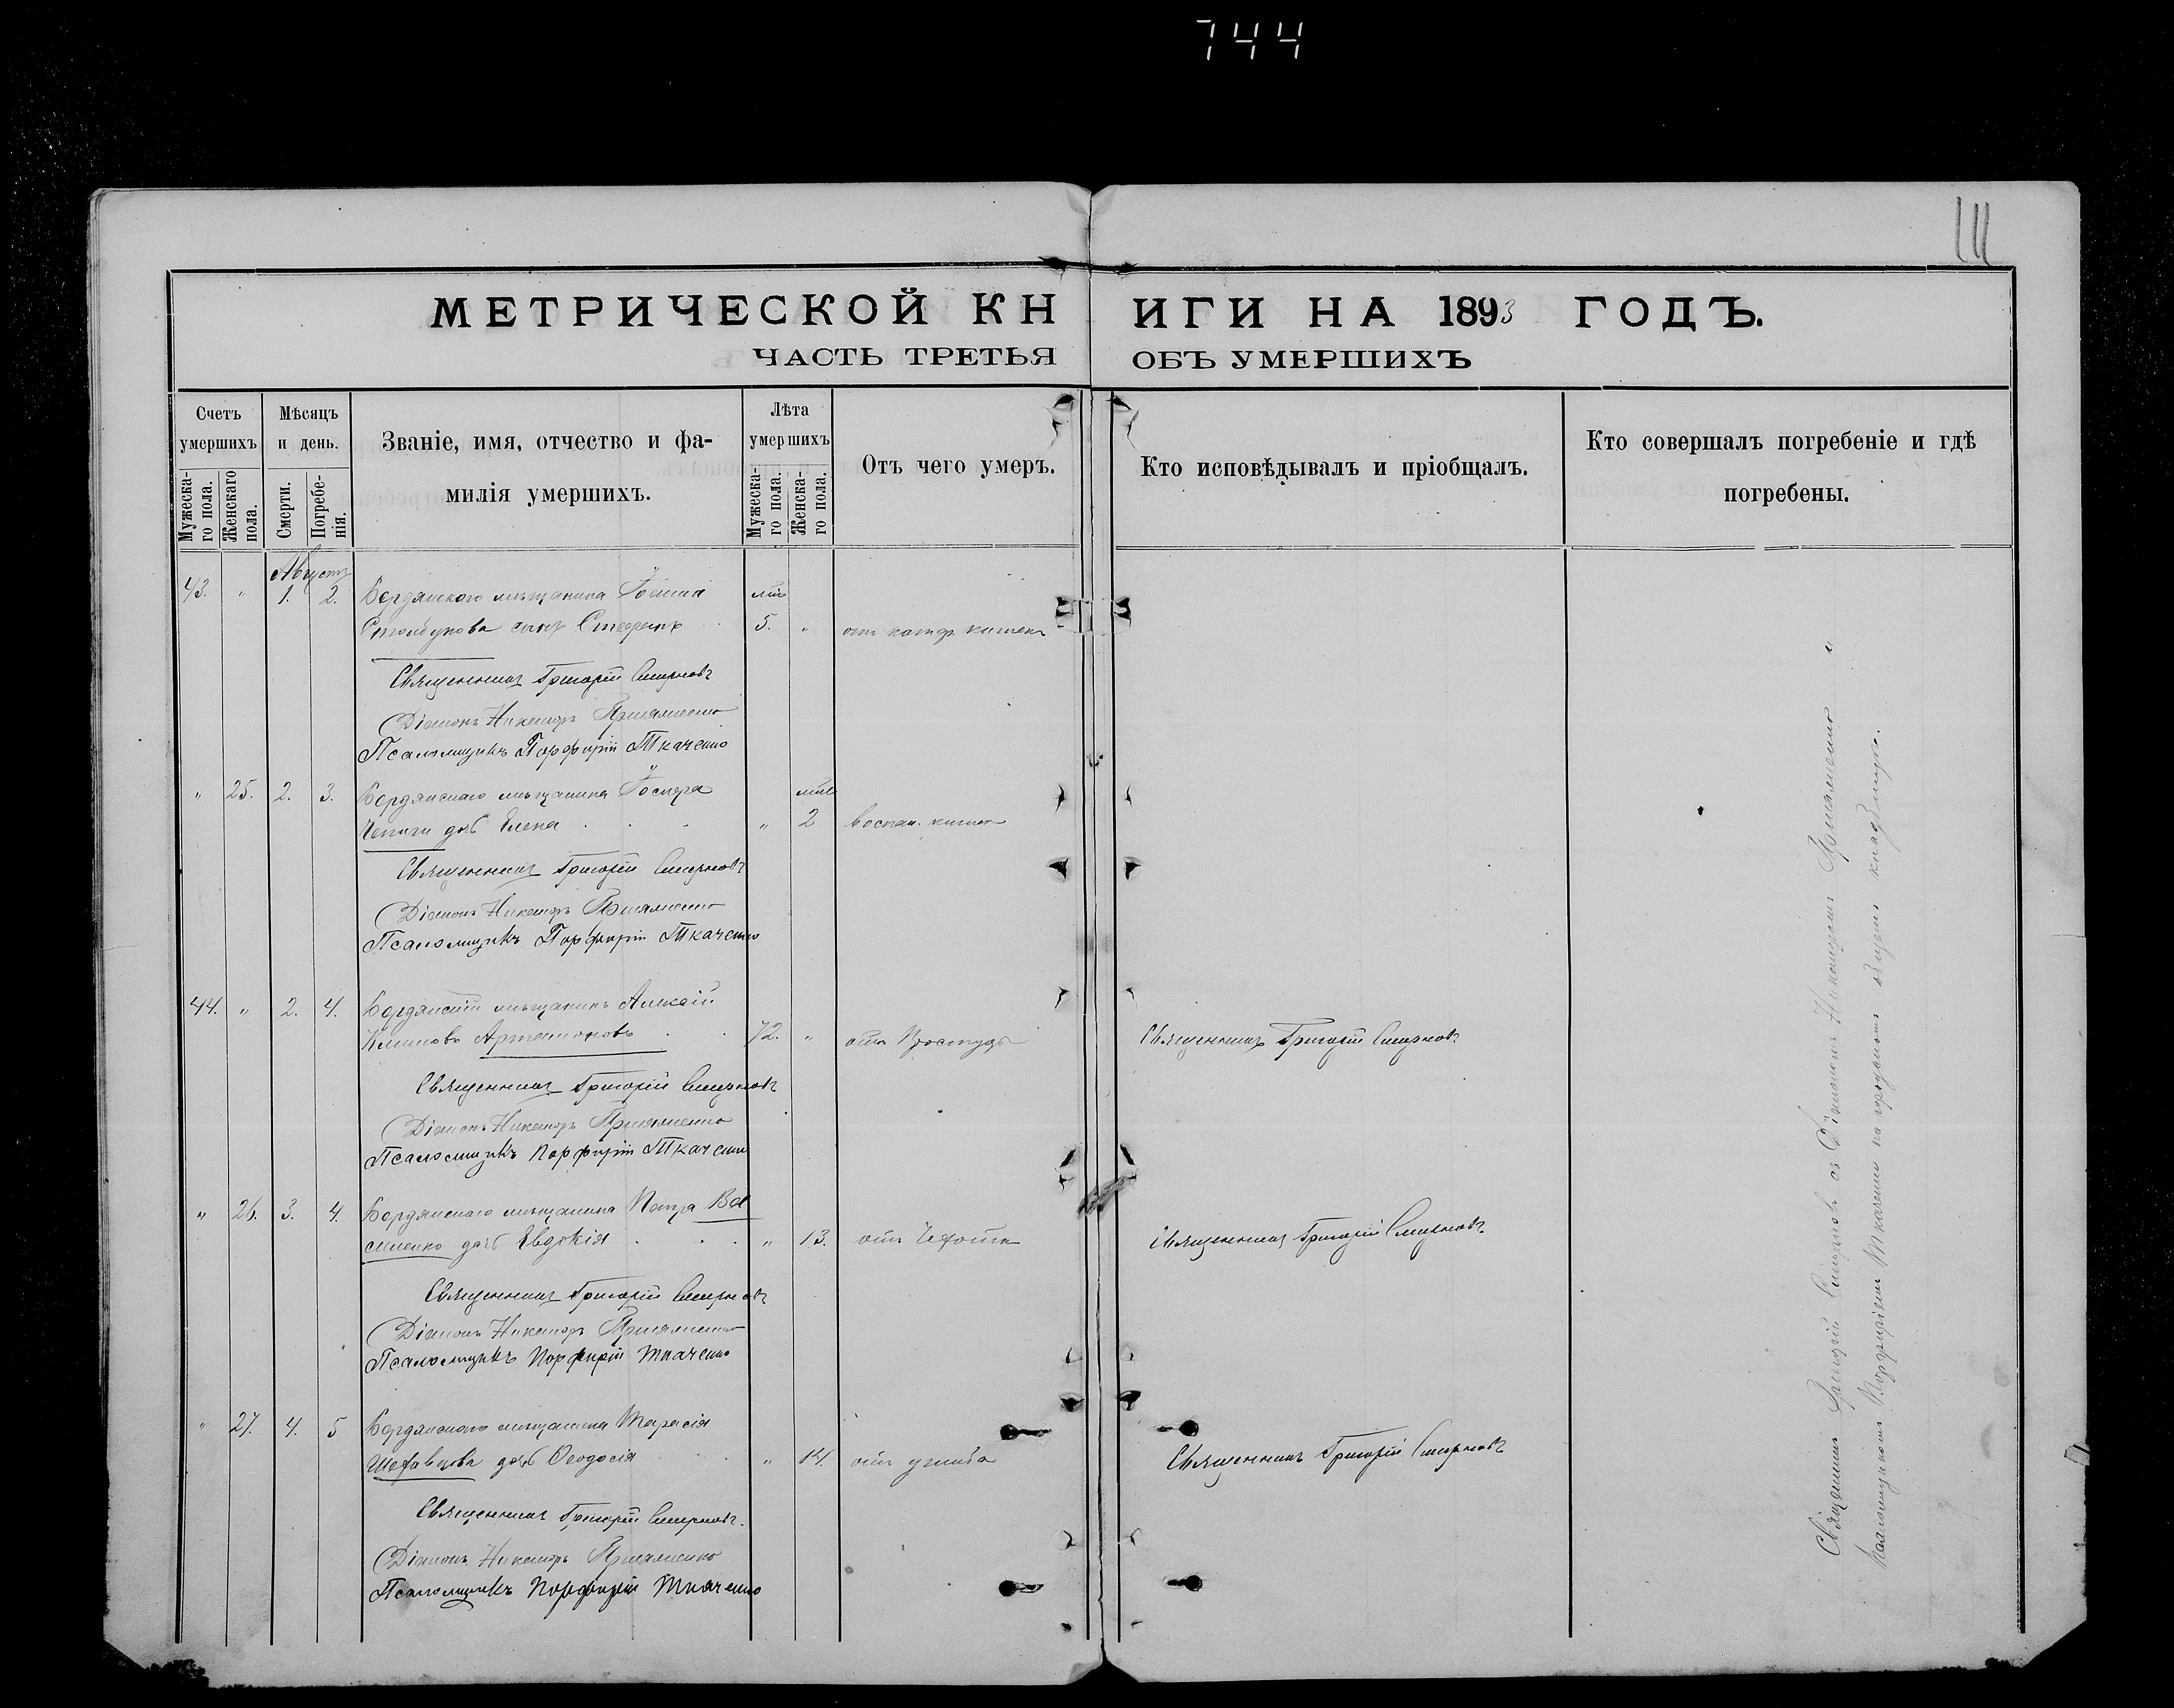 744
111
МЕТРИЧЕСКОЙ КНИГИ НА 1893 ГОДЪ.
ЧАСТЬ ТРЕТЬЯ ОБЪ УМЕРШИХЪ
Счетъ умершихъ
Мѣсяцъ и день.
Званіе, имя, отчество и фа-
милія умершихъ.
Лѣта умершихъ
Отъ чего умеръ.
Кто исповѣдывалъ и пріобщалъ.
Кто совершалъ погребеніе и гдѣ
погребены.
Мужеска-
го пола.
Женскаго
пола.
Смерти.
Погребе-
нія.
Мужеска-
го пола.
Женска-
го пола.
Августъ
43. " 1. 2. Бердянскаго мѣщанина
сынъ Стефанъ 5. " отъ катар. кишекъ
Священникъ Григорій Смирновъ
Діаконъ Никаноръ
Псаломщикъ Порфирій Ткаченко
" 25. 2. 3. Бердянскаго мѣщанина
дочь Елена " 2 воспал. кишекъ
Священникъ Григорій Смирновъ
Діаконъ Никаноръ
Псаломщикъ Порфирій Ткаченко
44. " 2. 4. Бердянскій мѣщанинъ Алексій
Климовъ Артамоновъ 72. " отъ Простуды Священникъ Григорій Смирновъ
Священникъ Григорій Смирновъ
Діаконъ Никаноръ
Псаломщикъ Порфирій Ткаченко
" 26. 3. 4. Бердянскаго мѣщанина Петра Ва
силенко дочь Евдокія " 13. отъ Чахотки Священникъ Григорій Смирновъ.
Священникъ Григорій Смирновъ
Діаконъ Никаноръ
Псаломщикъ Порфирій Ткаченко
" 27. 4. 5 Бердянскаго мѣщанина Тарасія
дочь Ѳеодосія " 14. отъ Священникъ Григорій Смирновъ
Священникъ Григорій Смирновъ.
Діаконъ Никаноръ
Псаломщикъ Порфирій Ткаченко
Священникъ Григорій Смирновъ съ Діакономъ Никаноромъ и
Псаломщикомъ Порфиріемъ Ткаченко на городскомъ общемъ кладбищѣ.